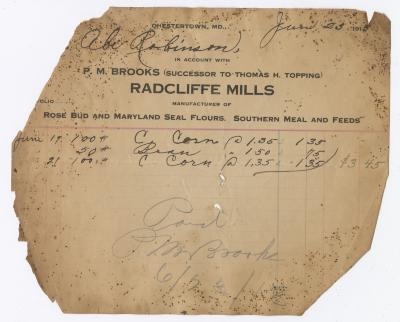 CHESTERTOWN, MD., June 23 191
Abe Robinson,
IN ACCOUNT WITH
P. M. BROOKS (SUCCESSOR TO THOMAS H. TOPPING)
RADCLIFFE MILLS
MANUFACTURER OF
OLIO
ROSE BUD AND MARYLAND SEAL FLOURS. SOUTHERN MEAL AND FEEDS
June 17 100# C Corn @ 1.35 1 35
50# Bran " 1 50 75
21 100# C Corn @ 1.35 1 35 $3 45
Paid
P. M. Brooks
6/2